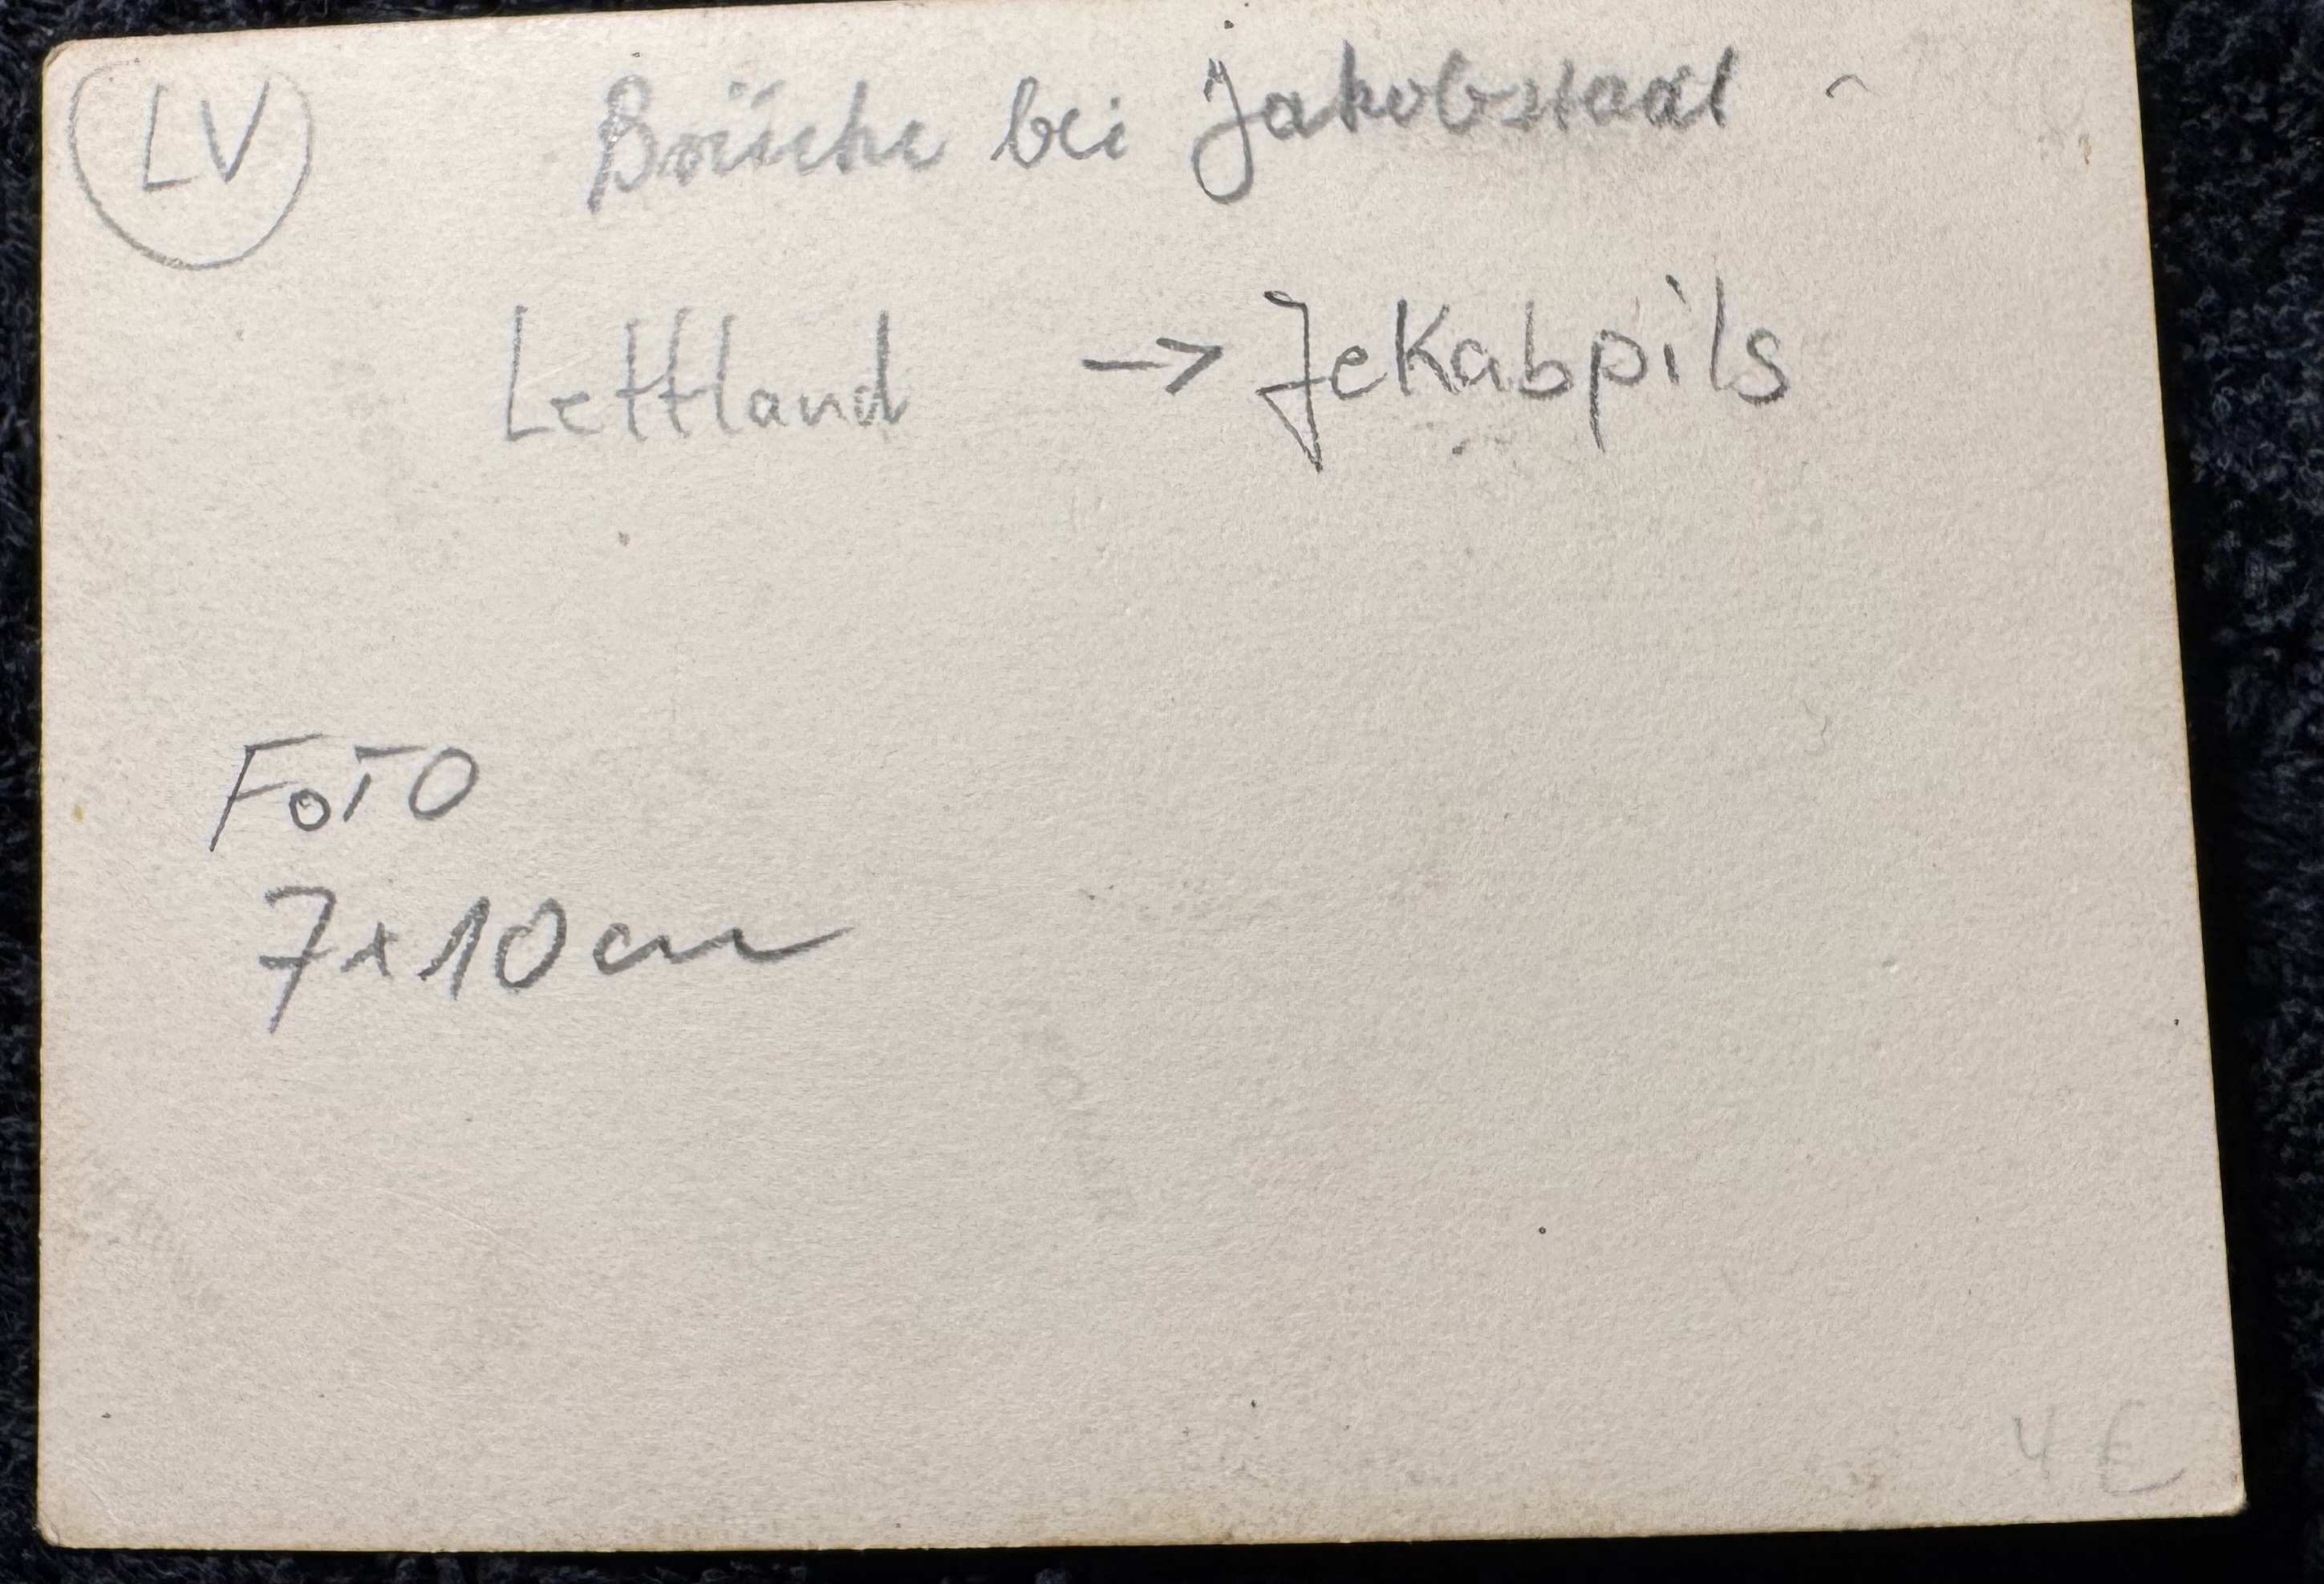 LV
Brücke bei Jakobstadt
Lettland → Jekabpils
FOTO
7x10cm
4 €